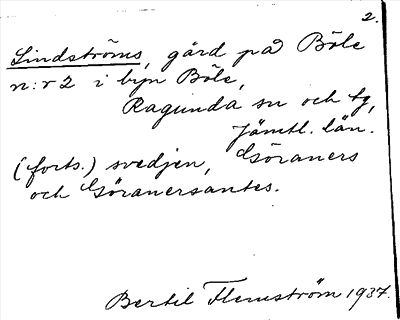 2.
Lindströms, gård på Böle
n:r 2 i byn Böle,
Ragunda sn och tg,
Jämtl. län.
(forts.) svedjen, Göraners
och Göranersantes.
Bertil Flemström 1937.